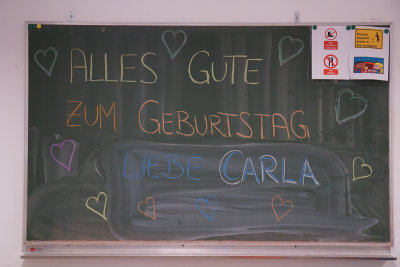 ALLES GUTE
ZUM GEBURTSTAG
LIEBE CARLA